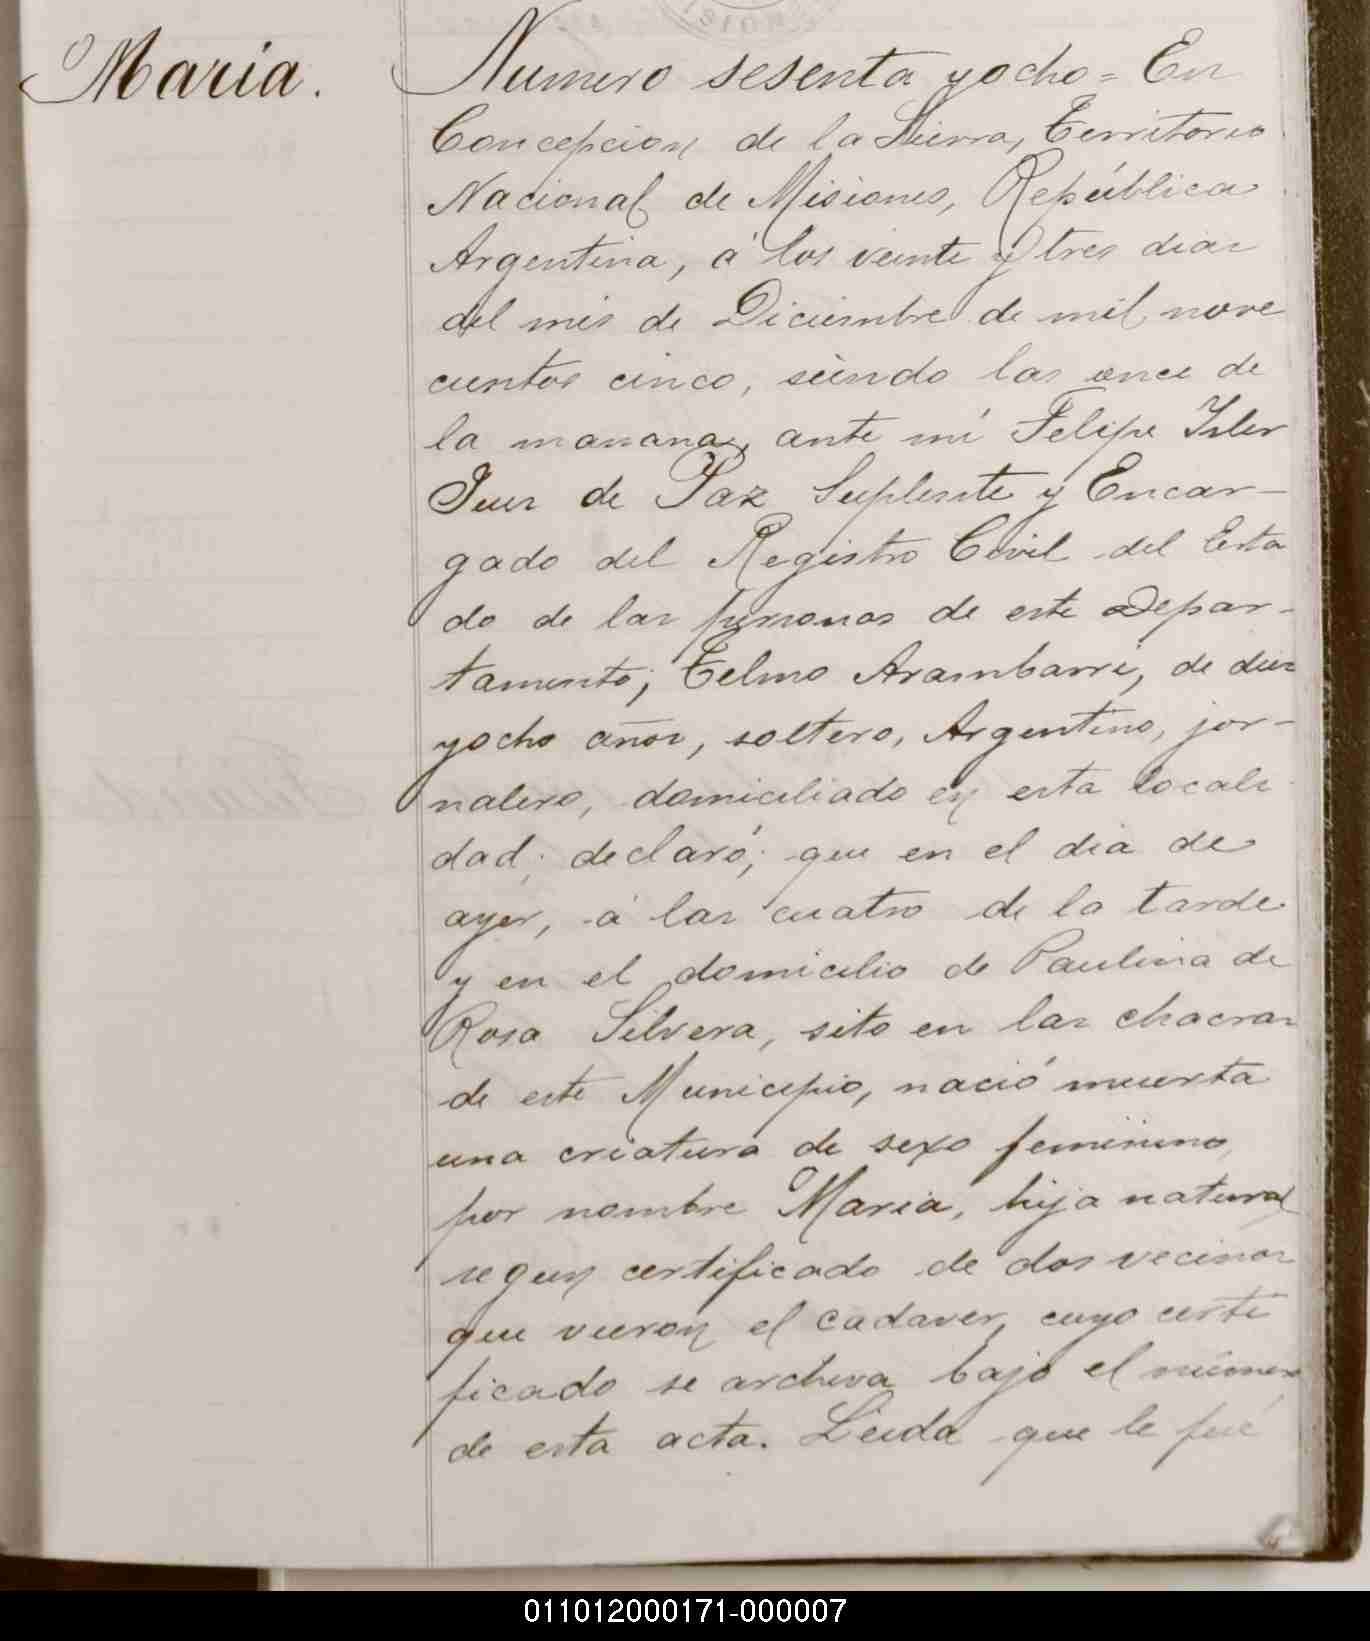 Maria.
Numero sesenta yocho = En
Concepcion de la Sierra, Territorio
Nacional de Misiones, República
Argentina, á los veinte y tres dias
del mes de Diciembre de mil nove
cientos cinco, siendo las once de
la manana, ante mi Felipe Isler
Juez de Paz Suplente y Encar-
gado del Registro Civil del Esta
do de las personas de este Depar-
tamento; Telmo Arambarri, de diez
yocho años, soltero, Argentino, jor-
nalero, domiciliado en esta locali
dad; declaró; que en el dia de
ayer, á las cuatro de la tarde
y en el domicilio de Paulina de
Rosa Silvera, sito en las chacras
de este Municipio, nació muerta
una criatura de sexo feminino,
por nombre Maria, hija natural
segun certificado de dos vecinos
que vieron el cadaver, cuyo certi
ficado se archiva bajo el número
de esta acta. Leida que le fué
011012000171-000007